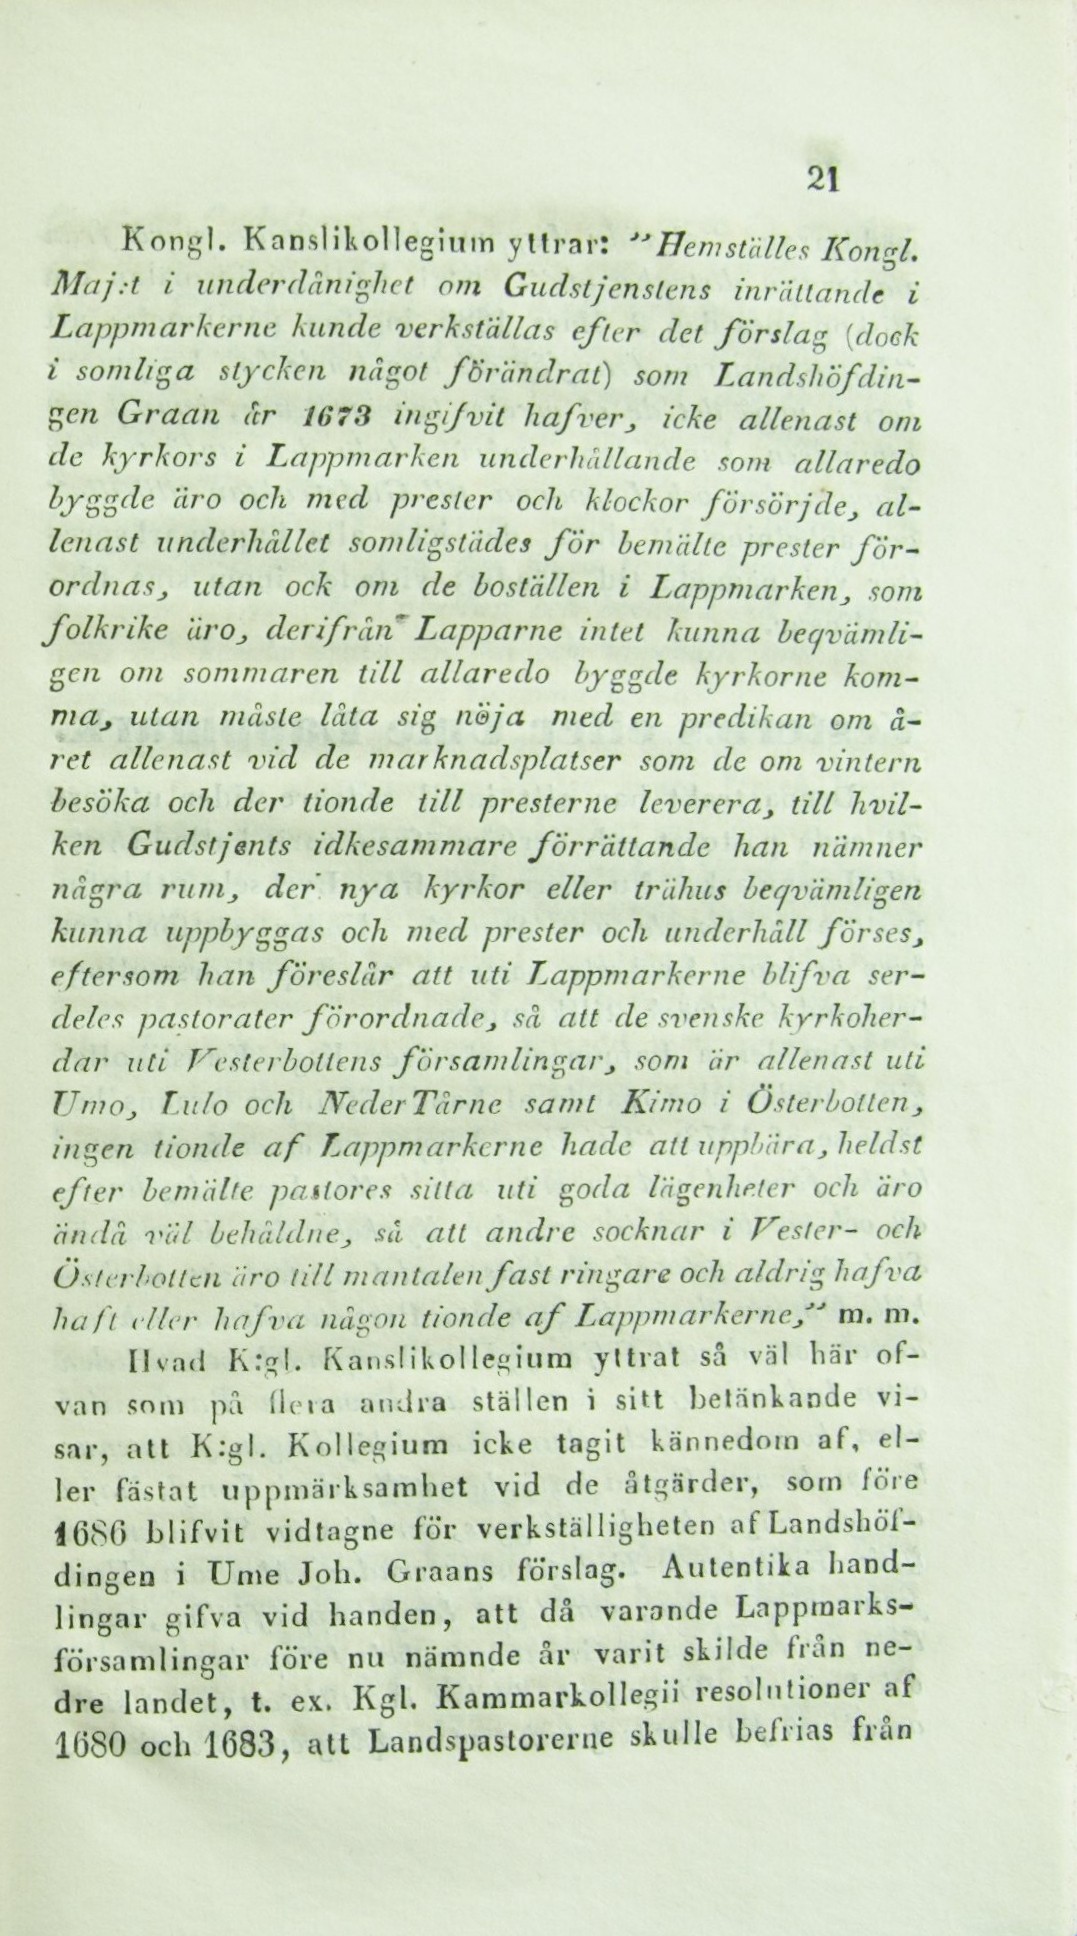 21
Kongl. Kanslikollegium yttrar: "Hemställes Kongl.
Maj:t i underdånighet om Gudstjenstens inrättande i
Lappmarkerne kunde verkställas efter det förslag (dock
i somliga stycken något förändrat) som Landshöfdin-
gen Graan år 1673 ingifvit hafver, icke allenast om
de kyrkors i Lappmarken underhållande som allaredo
byggde äro och med prester och klockor försörjde, al-
lenast underhållet somligstädes för bemälte prester för-
ordnas, utan ock om de boställen i Lappmarken, som
folkrike äro, derifrån Lapparne intet kunna beqvämli-
gen om sommaren till allaredo byggde kyrkorne kom-
ma, utan måste låta sig nöja med en predikan om å-
ret allenast vid de marknadsplatser som de om vintern
besöka och der tionde till presterne leverera, till hvil-
ken Gudstjents idkesammare förrättande han nämner
några rum, der nya kyrkor eller trähus beqvämligen
kunna uppbyggas och med prester och underhåll förses,
eftersom han föreslår att uti Lappmarkerne blifva ser-
deles pastorater förordnade, så att de svenske kyrkoher-
dar uti Vesterbottens församlingar, som är allenast uti
Umo, Lulo och Neder Tårne samt Kimo i Österbotten,
ingen tionde af Lappmarkerne hade att uppbära, heldst
efter bemälte pastores sitta uti goda lägenheter och äro
ändå väl behåldne, så att andre socknar i Vester- och
Österbotten äro till mantalen fast ringare och aldrig hafva
haft eller hafva någon tionde af Lappmarkerne," m. m.
Hvad K:gl. Kanslikollegium yttrat så väl här of-
van som på flera andra ställen i sitt betänkande vi-
sar, att K:gl. Kollegium icke tagit kännedom af, el-
ler fästat uppmärksamhet vid de åtgärder, som före
1686 blifvit vidtagne för verkställigheten af Landshöf-
dingen i Ume Joh. Graans förslag. Autentika hand-
lingar gifva vid handen, att då varande Lappmarks-
församlingar före nu nämnde år varit skilde från ne-
dre landet, t. ex. Kgl. Kammarkollegii resolutioner af
1680 och 1683, att Landspastorerne skulle befrias från